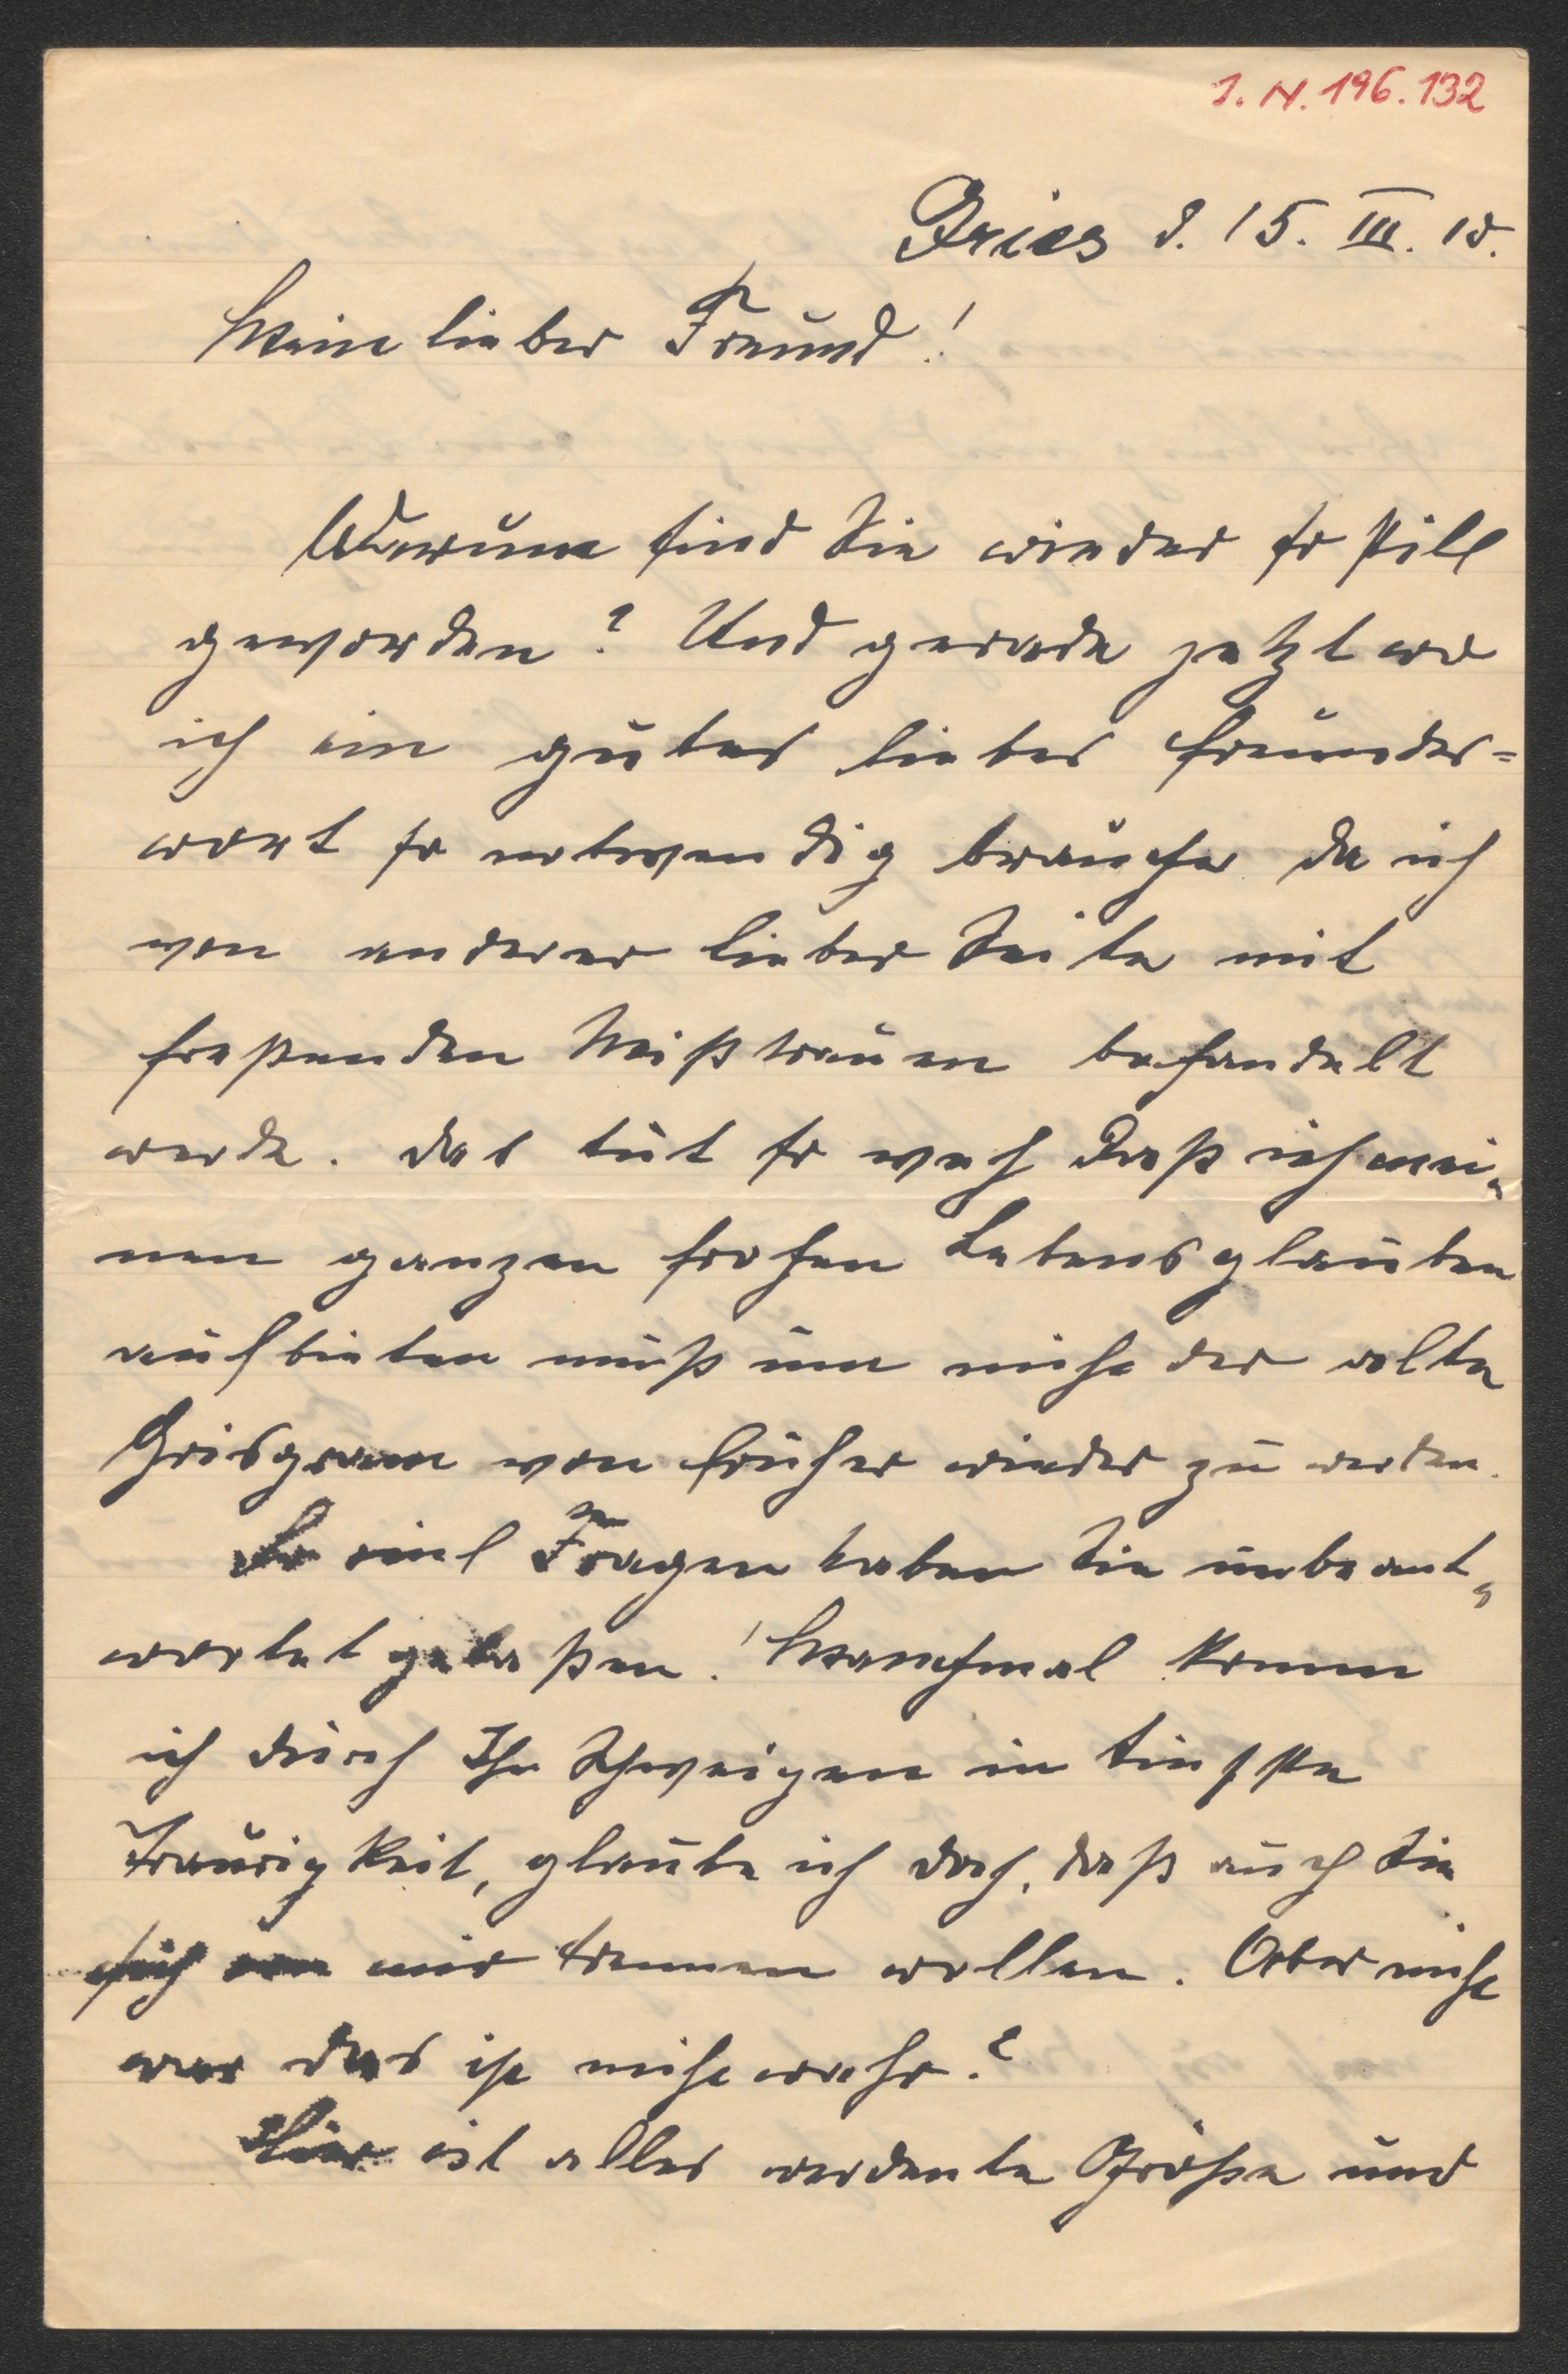 I. N. 196.132
Gries d. 15. III. 18.
Mein lieber Freund!
Warum sind Sie wieder so still
geworden? Und gerade jetzt wo
ich ein gutes liebes Freundes=
wort so notwendig brauche da ich
von anderer lieber Seite mit
fressenden Misstrauen behandelt
werde. Das tut so weh dass ich mei„
nen ganzen frohen Lebensglauben
aufbieten muß um nicht der alte
Grisgram von früher wieder zu werden.
So viel Fragen haben Sie unbeant„
wortet gelassen! Manchmal komm
ich durch Ihr Schweigen in tiefste
Traurigkeit, glaube ich doch, daß auch Sie
sich von mir trennen wollen. Aber nicht
war das ist nicht wahr?
Hier ist alles werdende Größe und